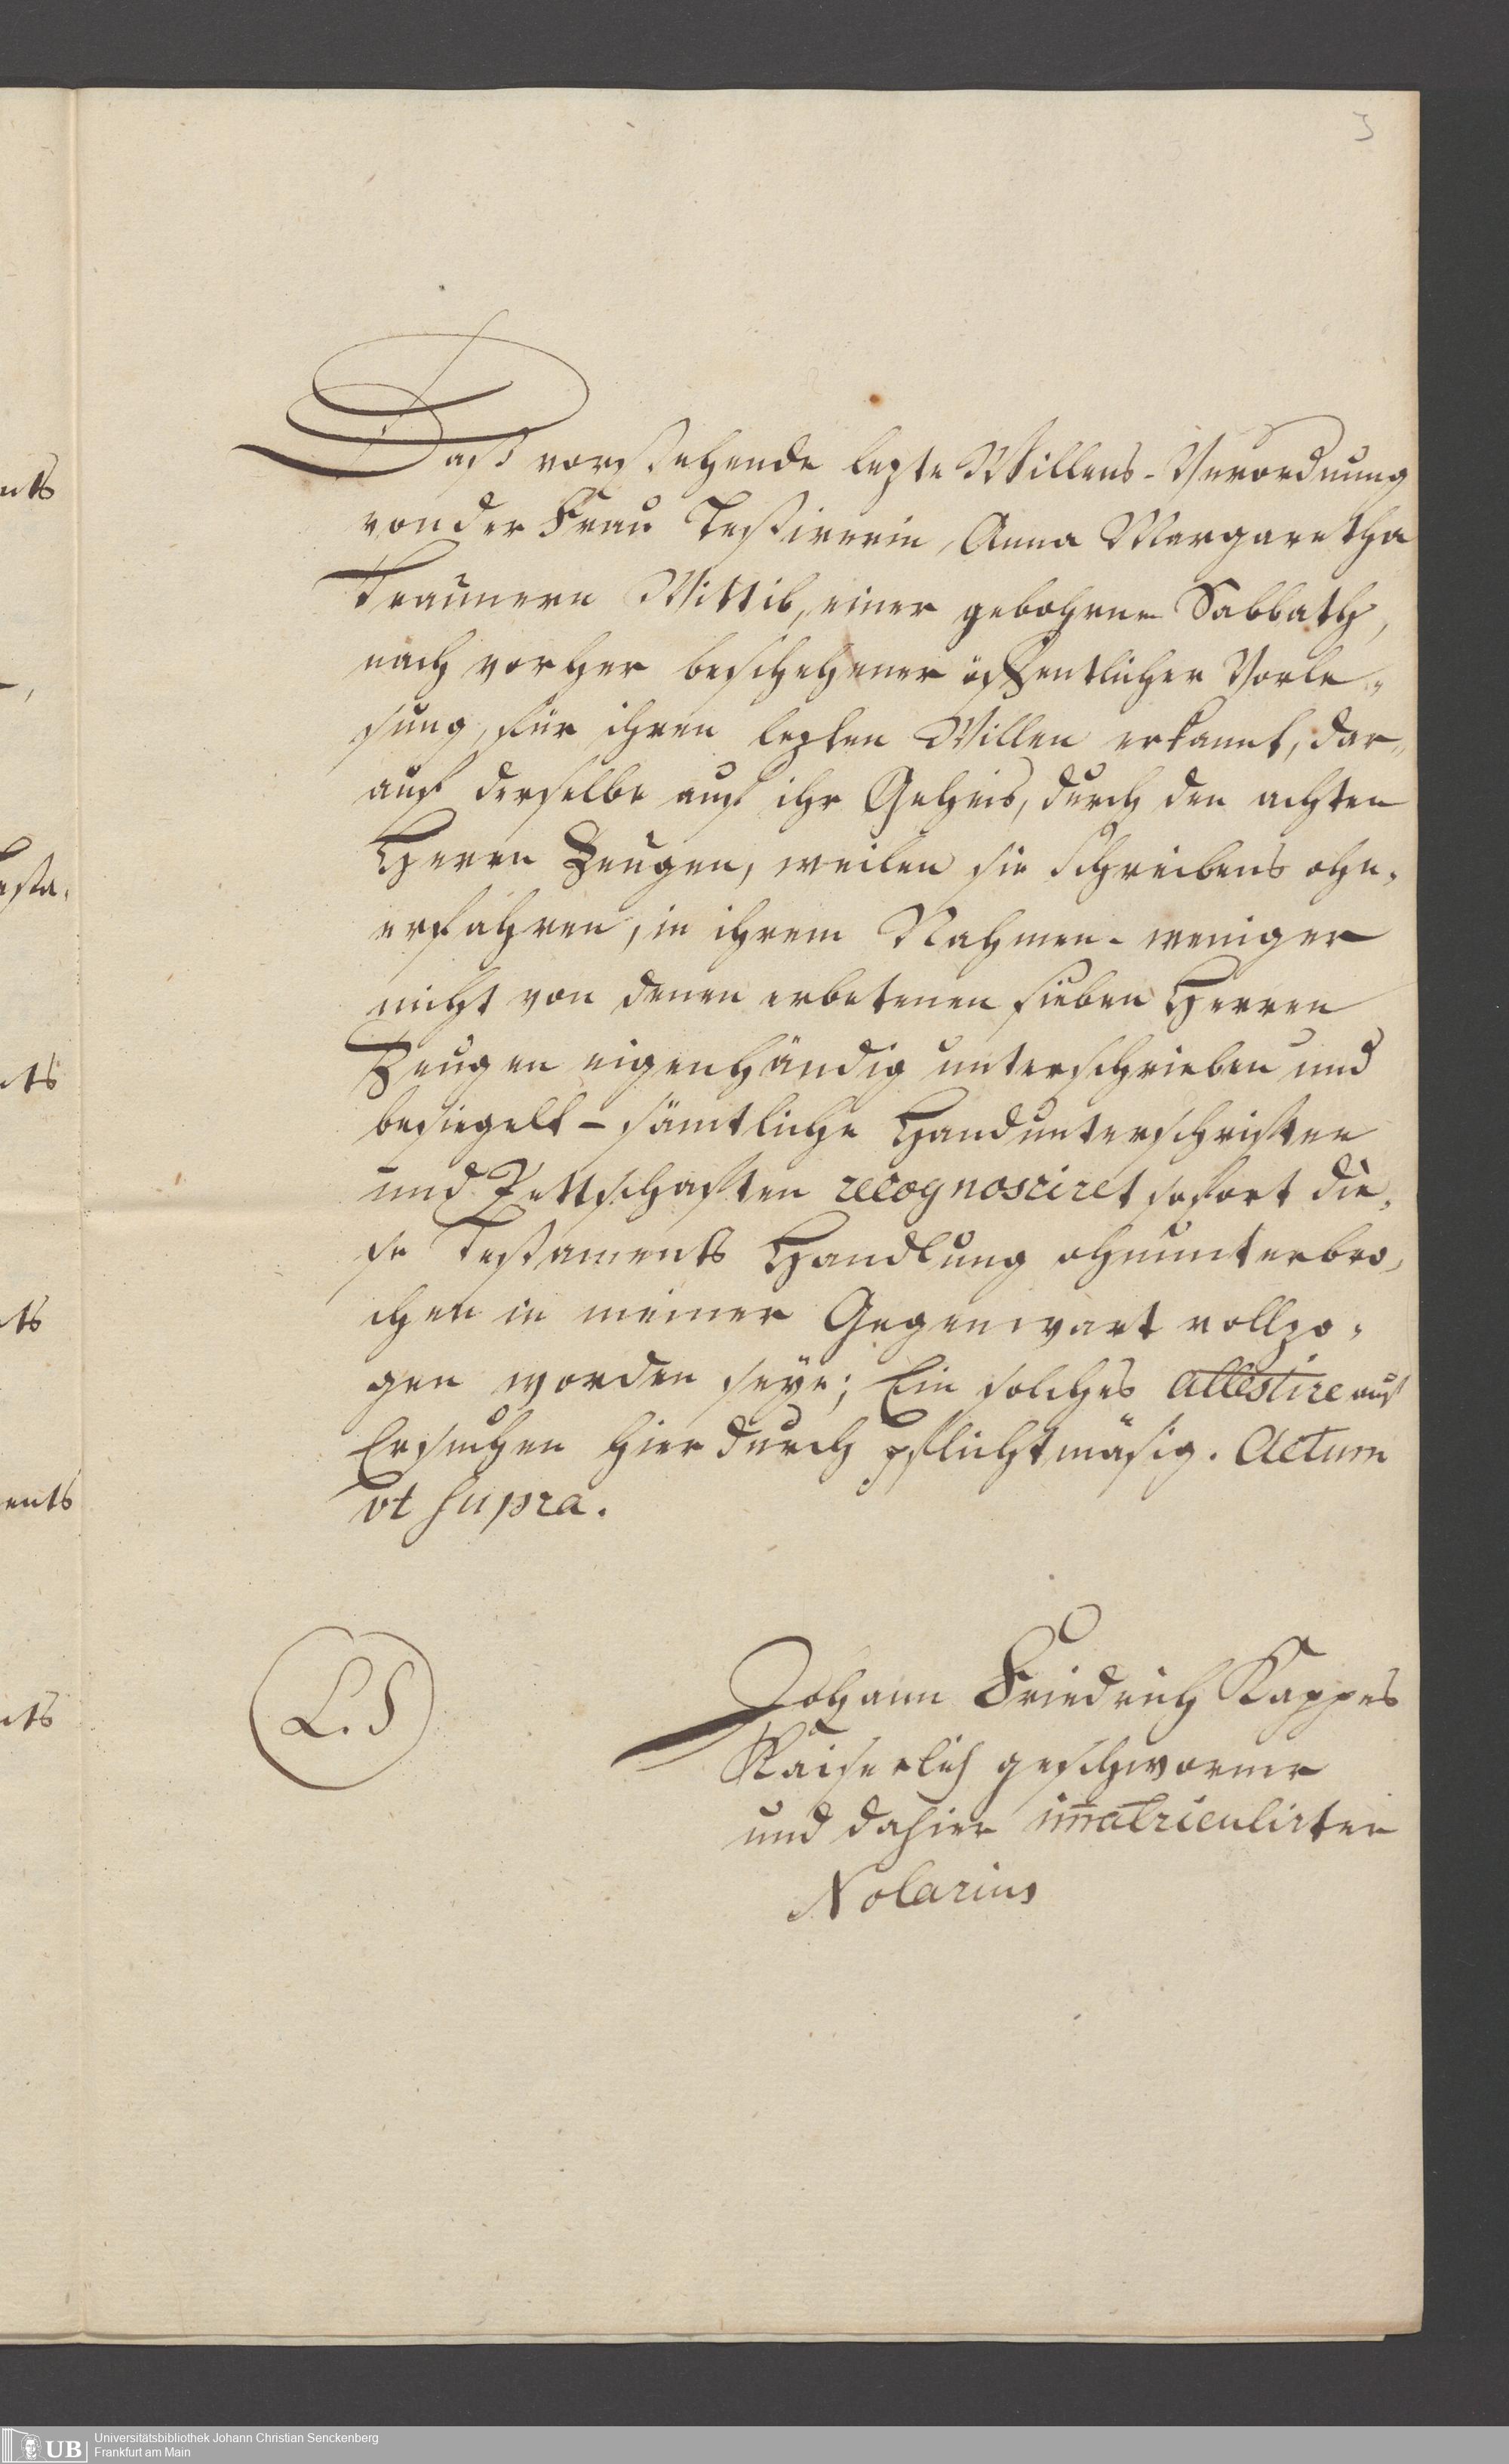 3
Daß vorstehende lezte Willens-Verordnung
von der Frau Testirerin, Anna Margaretha
Traunern Wittib, einer gebohrnen Sabbath,
nach vorher beschehener öffentlicher Vorle„
sung, für ihren lezten Willen erkannt, dar„
auf derselbe auf ihr Geheis, durch den achten
Herrn Zeugen, weilen sie Schreibens ohn„
erfahren, in ihrem Nahmen - weniger
nicht von denen erbetenen sieben Herren
Zeugen eigenhändig unterschrieben und
besiegelt - sämtliche Handunterschriften
und Pettschaften recognosciret sofort die„
se Testaments Handlung ohnunterbro„
chen in meiner Gegenwart vollzo„
gen worden seye; Ein solches attestire auf
Ersuchen hierdurch pflichtmäsig. Actum
vt supra.
L. S
Johann Friedrich Kappes
Kaiserlich geschworner
und dahier im̄atriculirter
Notarius
nts
esta„
nts
ts
ents
nts
UB
Universitätsbibliothek Johann Christian Senckenberg
Frankfurt am Main